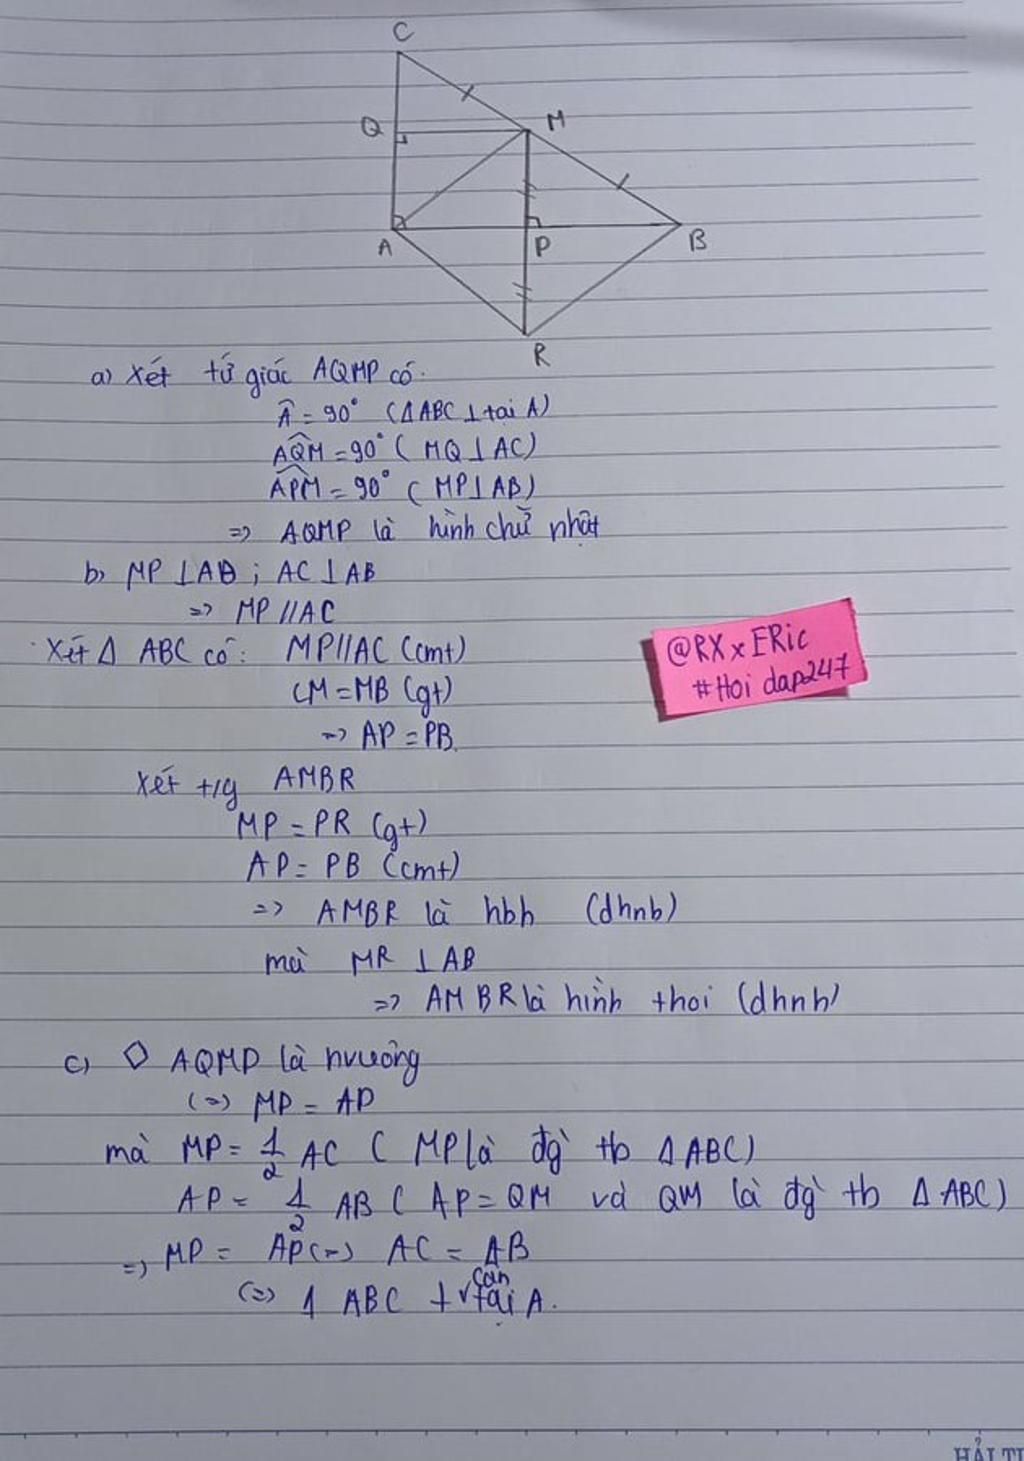 C
Q
M
A
P
B
R
a) Xét tứ giác AQMP có.
Â = 90° (Δ ABC ⊥ tại A)
AQM = 90° ( MQ ⊥ AC)
APM = 90° ( MP ⊥ AB)
=> AQMP là hình chữ nhật
b) MP ⊥ AB ; AC ⊥ AB
=> MP // AC
Xét Δ ABC có: MP // AC (cmt)
CM = MB (gt)
=> AP = PB.
@RX x ERic
#Hoi dap247
Xét t/g AMBR
MP = PR (gt)
AP = PB (cmt)
=> AMBR là hbh (dhnb)
mà MR ⊥ AB
=> AMBR là hình thoi (dhnb)
c) ◇ AQMP là hvuông
(=>) MP = AP
mà MP = 1/2 AC ( MP là đg tb Δ ABC)
AP = 1/2 AB ( AP = QM và QM là đg tb Δ ABC)
=> MP = AP (=) AC = AB
(=>) Δ ABC ⊥ v cân tại A.
HẢI